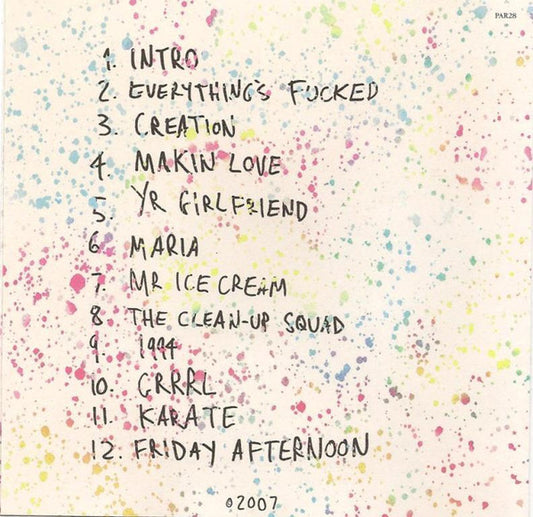 PAR28
1. INTRO
2. EVERYTHING'S FUCKED
3. CREATION
4. MAKIN LOVE
5. YR GIRLFRIEND
6. MARIA
7. MR ICE CREAM
8 THE CLEAN-UP SQUAD
9. 1994
10. GRRRL
11. KARATE
12. FRIDAY AFTERNOON
©2007